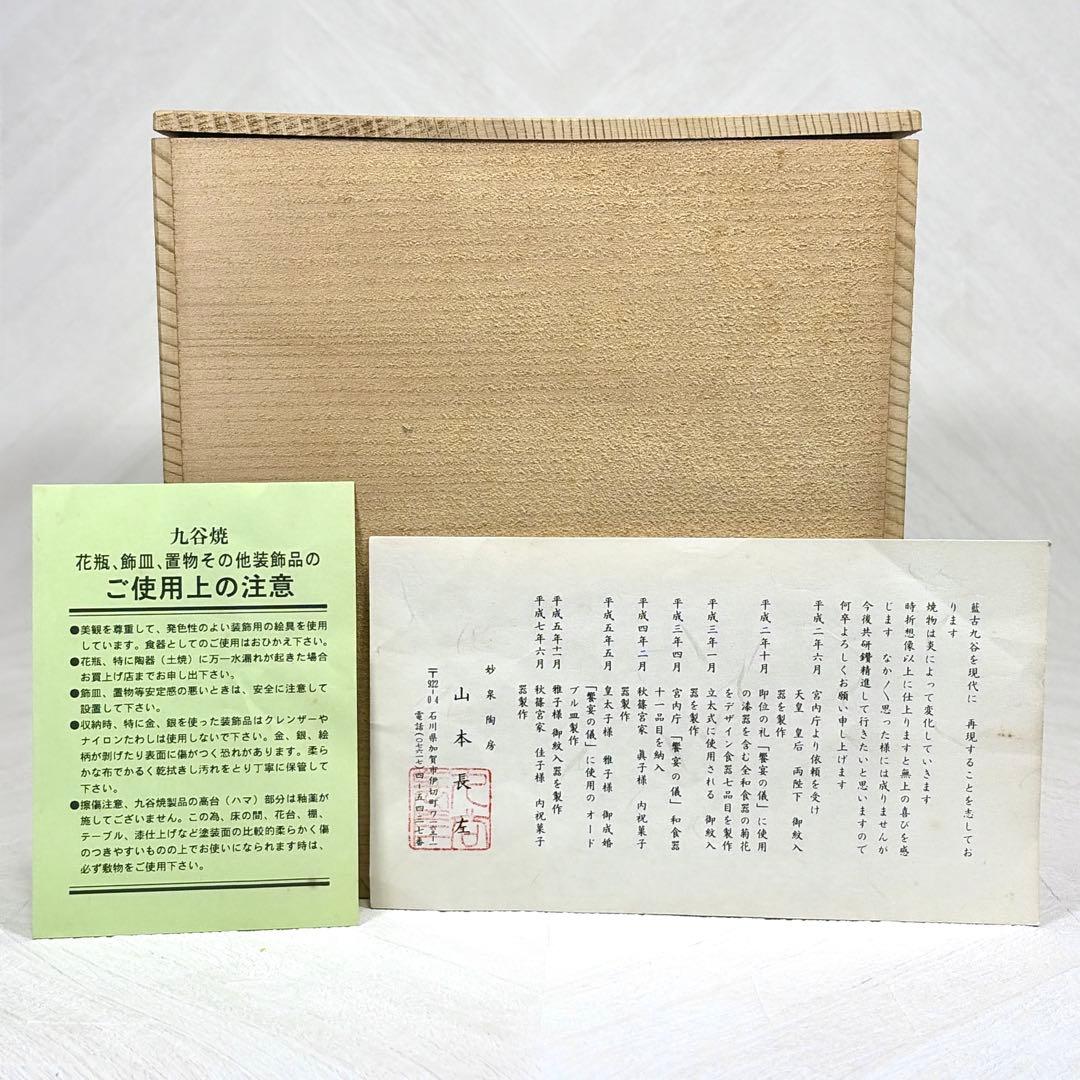 九谷焼
花瓶、飾皿、置物その他装飾品の
ご使用上の注意
●美観を尊重して、発色性のよい装飾用の絵具を使用
しています。食器としてのご使用はおひかえ下さい。
●花瓶、特に陶器(土焼)に万一水漏れが起きた場合
お買上げ店までお申し出下さい。
●飾皿、置物等安定感の悪いときは、安全に注意して
設置して下さい。
●収納時、特に金、銀を使った装飾品はクレンザーや
ナイロンたわしは使用しないで下さい。金、銀、絵
柄が剥げたり表面に傷がつく恐れがあります。柔ら
かな布でかるく乾拭きし汚れをとり丁寧に保管して
下さい。
●擦傷注意、九谷焼製品の高台(ハマ)部分は釉薬が
施してございません。この為、床の間、花台、棚、
テーブル、漆仕上げなど塗装面の比較的柔らかく傷
のつきやすいものの上でお使いになられます時は、
必ず敷物をご使用下さい。
藍古九谷を現代に 再現することを志してお
ります
焼物は炎によって変化していきます
時折想像以上に仕上りますと無上の喜びを感
じます なか〱思った様には成りませんが
今後共研鑽精進して行きたいと思いますので
何卒よろしくお願い申し上げます
平成二年六月 宮内庁より依頼を受け
天皇 皇后 両陛下 御紋入
器を製作
平成二年十月 即位の礼「饗宴の儀」に使用
の漆器を含む全和食器の菊花
をデザイン食器七品目を製作
平成三年一月 立太式に使用される 御紋入
器を製作
平成三年四月 宮内庁「饗宴の儀」和食器
十一品目を納入
平成四年二月 秋篠宮家 眞子様 内祝菓子
器製作
平成五年五月 皇太子様 雅子様 御成婚
「饗宴の儀」に使用のオード
ブル皿製作
平成五年十一月 雅子様 御紋入器を製作
平成七年六月 秋篠宮家 佳子様 内祝菓子
器製作
妙泉陶房
山本長左
〒922-04 石川県加賀市伊切町ワ一五一
電話(〇七六一七)四-五四三七番